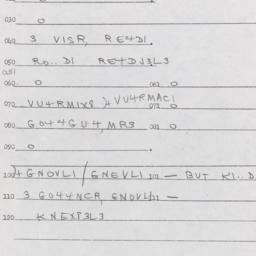 030 0 .
040 3 VISR, RE4DI.
050 RO.. DI RE4DJ3L3
051
060 0 061 0
070 VU4RMIX8 + VU4RMACI
071 0
080 GO44GU4, MR3 081 0
090 0 .
100 + GNOVLI / GNEVLI 101 — BUT KI..D
110 3 GO44NCR, GNOVL 111 —
120 KNEXP3L3